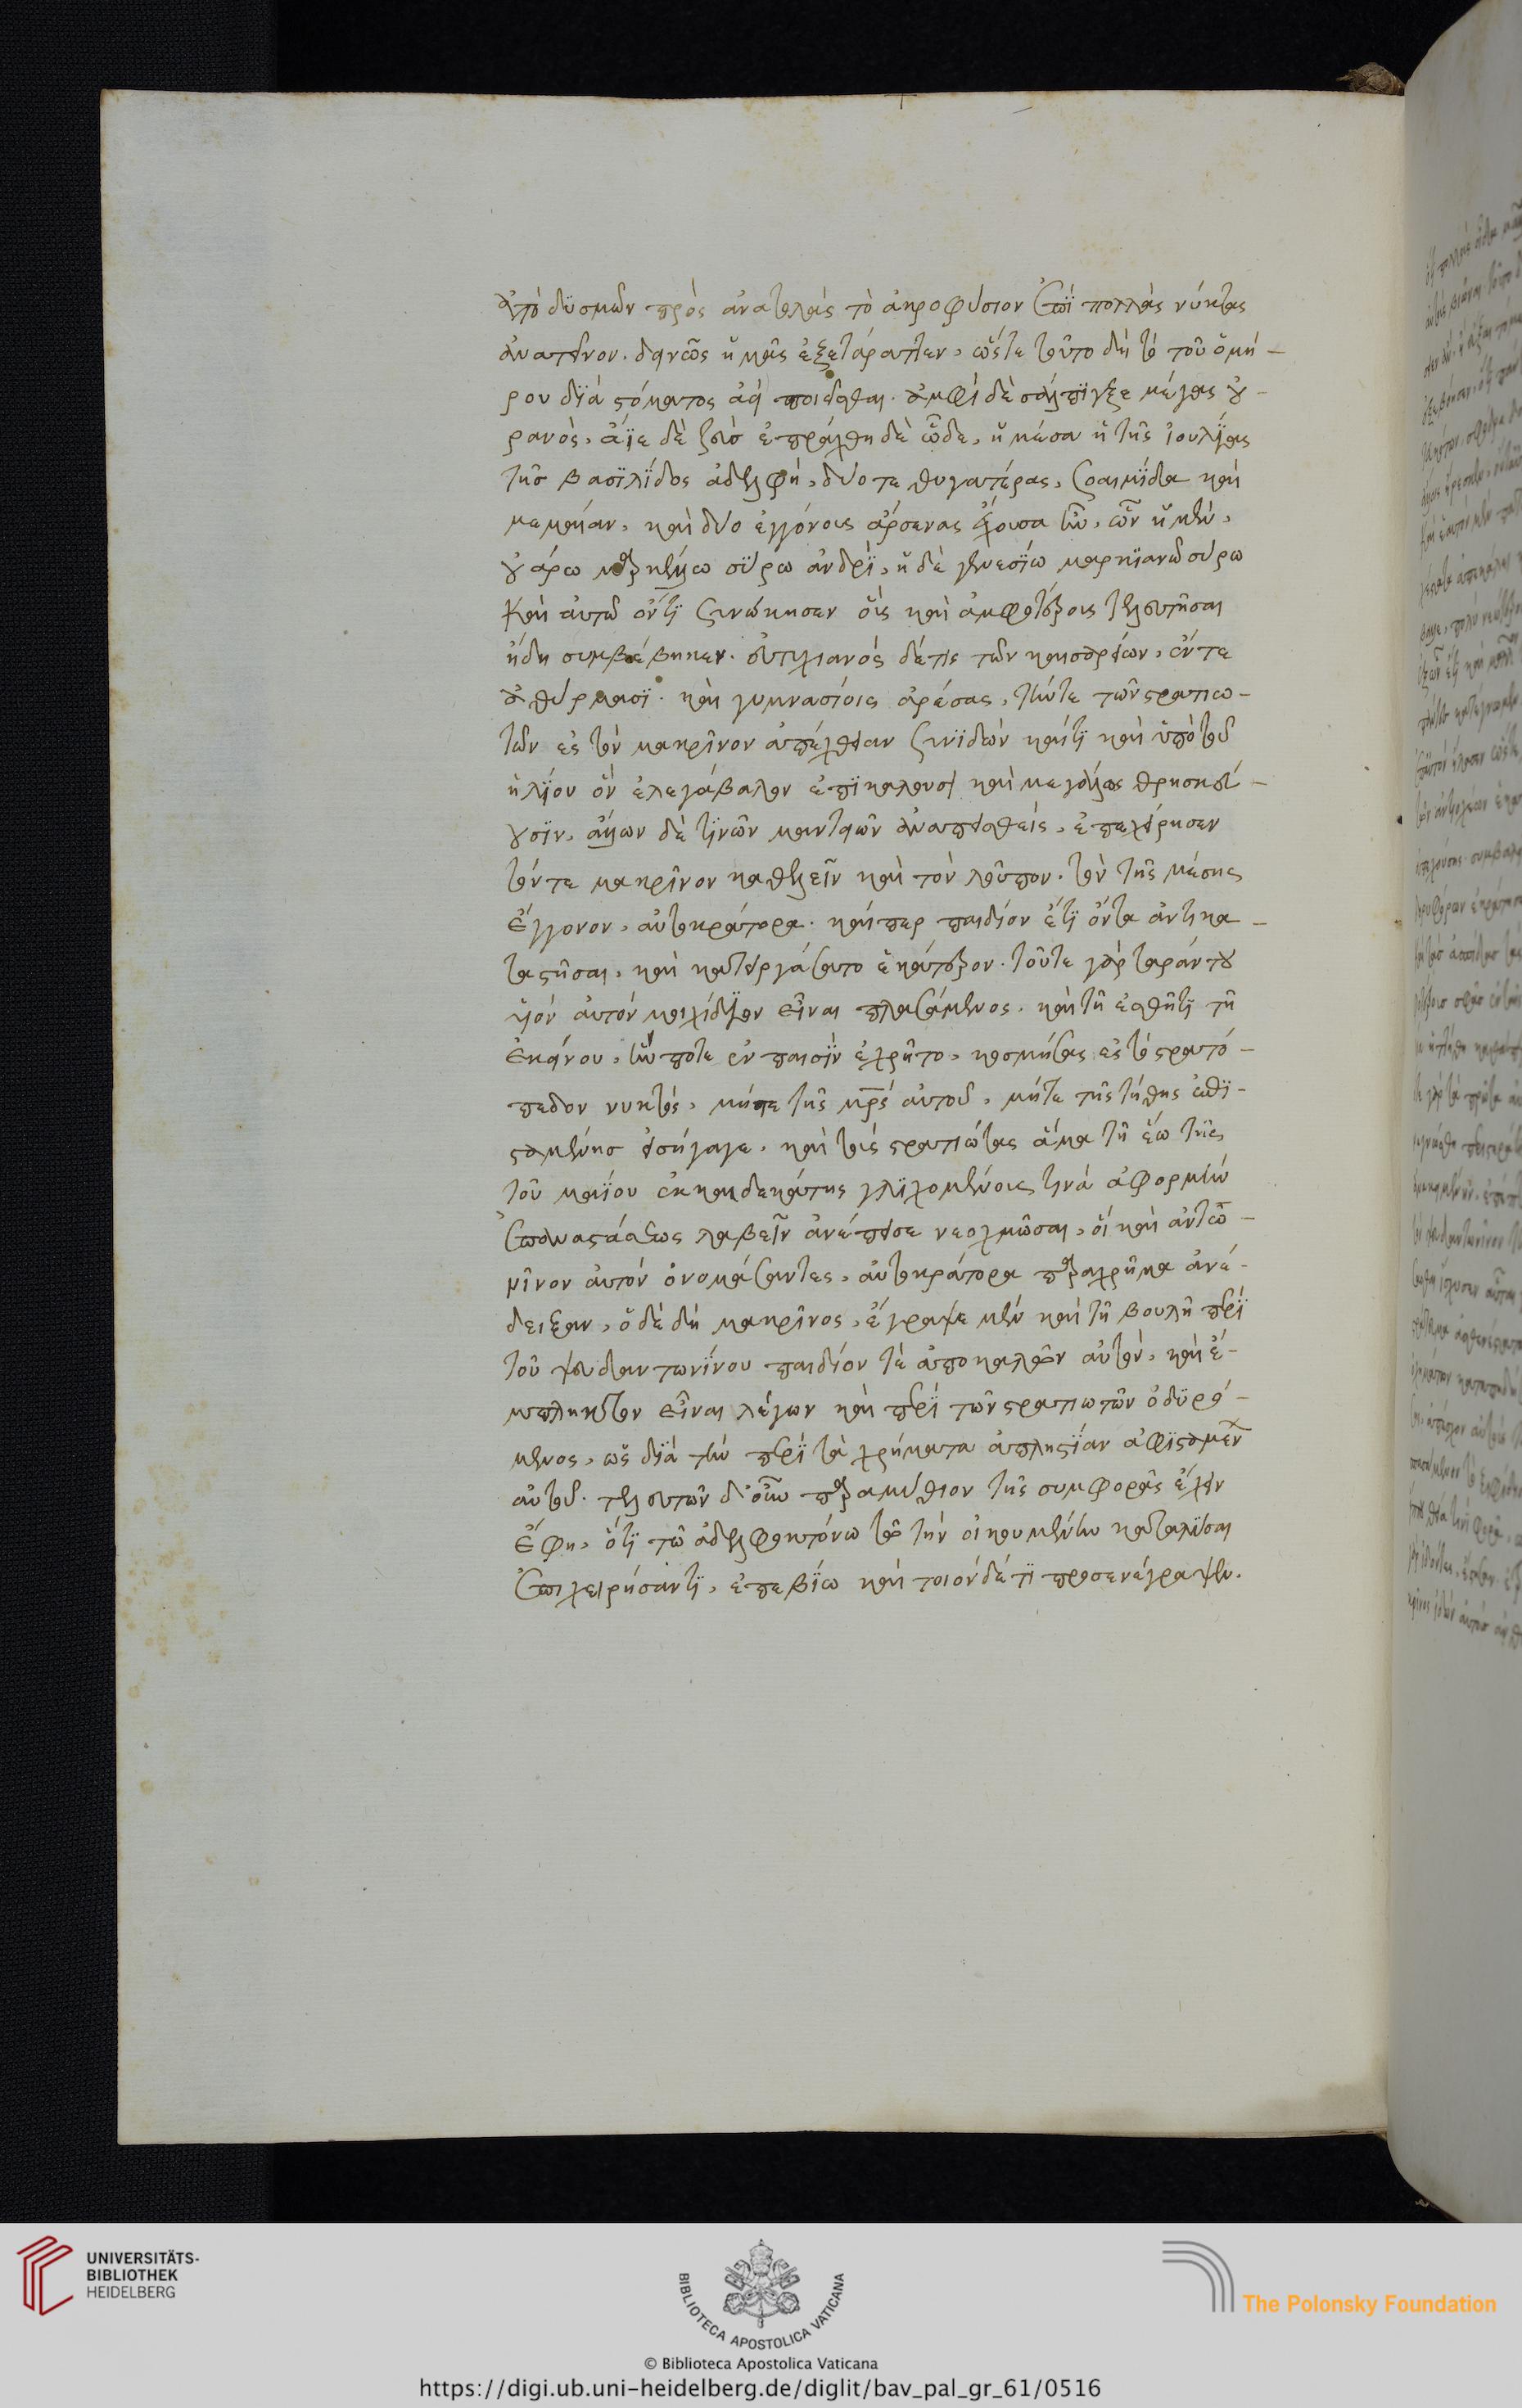 ἀπὸ δυσμῶν πρὸς ἀνατολὰς τὸ ἀκροφύσιον ἐπὶ πολλὰς νύκτας
ἀνατεῖνον. δεινῶς ἡμᾶς ἐξετάραττεν, ὥστε τοῦτο δὴ τὸ τοῦ ὁμή-
ρου διὰ στόματος ἀεὶ ποιεῖσθαι. ἀμφὶ δὲ σάλπιγξε μέγας οὐ-
ρανὸς, ἄϊε δὲ ζεὺσ ἐπράχθη δὲ ὧδε, ἡ μέσα ἡ τῆς ἰουλίας
τῆσ βασιλίδος ἀδελφὴ, δύο τε θυγατέρας, σοαιμίδα καὶ
μαμαίαν, καὶ δύο ἐγγόνους ἄρσενας ἔχουσα ἦν, ὧν ἡ μὲν,
οὐάρω μαρκέλλω σύρω ἀνδρὶ, ἡ δὲ γενεσίω μαρκιανῶ σύρω
καὶ αὐτῶ ὄντι συνώκησεν οἷς καὶ ἀμφοτέροις τελευτῆσαι
ἤδη συμβεβήκει. εὐτυχιανός δέ τις τῶν καισαρείων, ἔν τε
ἀθύρμασι. καὶ γυμνασίοις ἀρέσας, τήν τε τῶν στρατιω-
τῶν ἐς τὸν μακρῖνον ἀπέχθειαν συνιδὼν καί τι καὶ ὑπὸ τοῦ
ἡλίου ὃν ἐλεγάβαλον ἐπικαλοῦσι καὶ μεγάλως θρησκεύ-
ουσιν, ἄλλων δέ τινῶν μαντειῶν ἀναπεισθεὶς, ἐπεχείρησεν
τόν τε μακρῖνον καθελεῖν καὶ τὸν λοῦπον. τὸν τῆς μέσης
ἔγγονον, αὐτοκράτορα. καίπερ παιδίον ἔτι ὄντα ἀντικα-
ταστῆσαι, καὶ κατειργάσατο ἑκάτερον. τοῦτε γὰρ ταράντου
υἱὸν αὐτὸν μοιχίδιον εἶναι πλασάμενος. καὶ τῆ ἐσθῆτι τῆ
ἐκείνου, ἧ ποτε ἐν παισὶν ἐχρῆτο, κοσμήσας ἐς τὸ στρατό-
πεδον νυκτὸς, μήτε τῆς μρ̅ς αὐτοῦ, μήτε τῆς τήθης ἐπι-
σταμένησ εἰσήγαγε, καὶ τοὺς στρατιώτας ἅμα τῆ ἕω τῆς
τοῦ μαΐου ἑκκαιδεκάτης γλιχομένους τινὰ ἀφορμὴν
ἐπαναστάσεως λαβεῖν ἀνέπεισε νεοχμῶσαι, οἳ καὶ ἀντω-
νῖνον αὐτὸν ὀνομάσαντες, αὐτοκράτορα παραχρῆμα ἀνέ-
δειξαν, ὁ δὲ δὴ μακρῖνος, ἔγραψε μὲν καὶ τῆ βουλῆ περὶ
τοῦ ψευδαντωνίνου παιδίον τὲ ἀποκαλῶν αὐτὸν, καὶ ἔ-
μπληκτον εἶναι λέγων καὶ περὶ τῶν στρατιωτῶν ὀδυρό-
μενος, ὡς διὰ τὴν περὶ τὰ χρήματα ἀπληστίαν ἀφισταμέν
αὐτοῦ. τελευτῶν δ' οὖν παραμύθιον τῆς συμφορᾶς ἔχειν
ἔφη, ὅτι τῶ ἀδελφοκτόνω τῶ τὴν οἰκουμένην καταλῦσαι
ἐπιχειρήσαντι, ἐπεβίω καὶ τοιόνδε τι προσενέγραψεν.
UNIVERSITÄTS-
BIBLIOTHEK
HEIDELBERG
BIBLIOTECA APOSTOLICA VATICANA
The Polonsky Foundation
© Biblioteca Apostolica Vaticana
https://digi.ub.uni-heidelberg.de/diglit/bav_pal_gr_61/0516